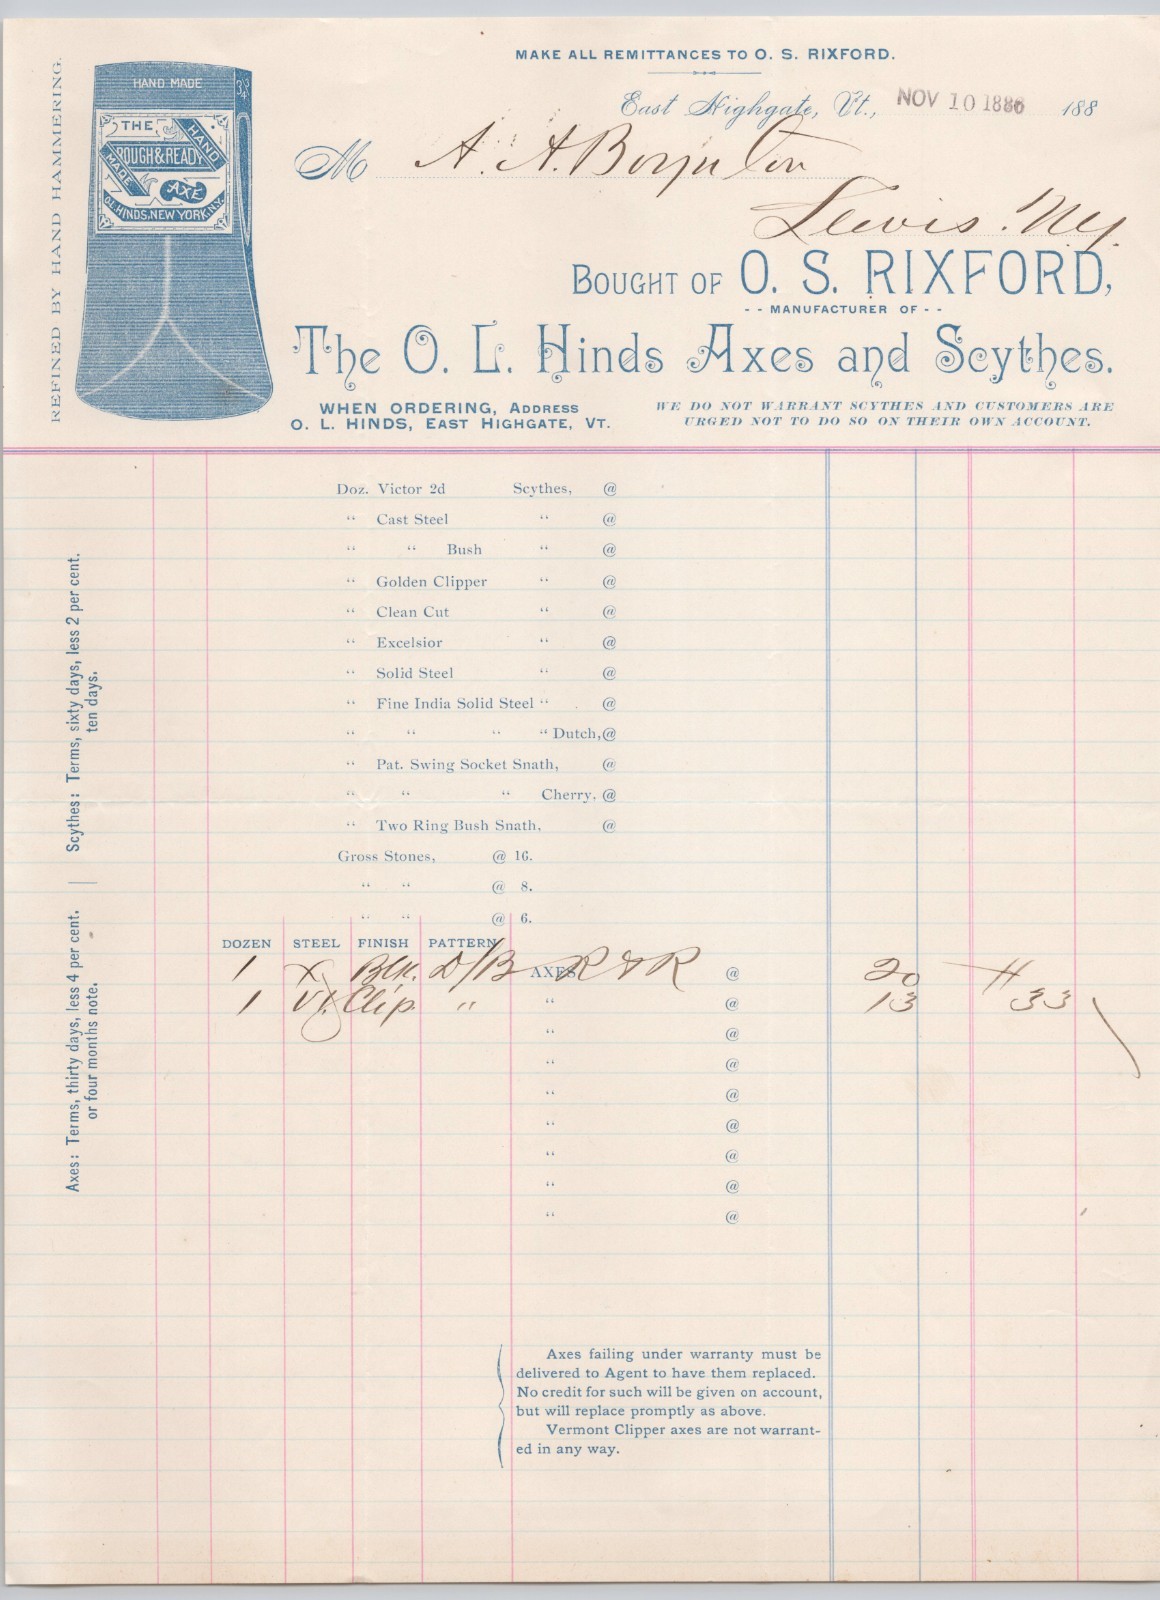 MAKE ALL REMITTANCES TO O. S. RIXFORD.
East Highgate, Vt., NOV 10 1886 188
REFINED BY HAND HAMMERING.
HAND MADE
THE
ROUGH & READY
HAND MADE
AXE
O.L. HINDS, NEW YORK, N.Y.
M A. A. Boynton
Lewis. Ny.
BOUGHT OF O. S. RIXFORD,
-- MANUFACTURER OF --
The O. L. Hinds Axes and Scythes.
WHEN ORDERING, ADDRESS
O. L. HINDS, EAST HIGHGATE, VT.
WE DO NOT WARRANT SCYTHES AND CUSTOMERS ARE
URGED NOT TO DO SO ON THEIR OWN ACCOUNT.
Doz. Victor 2d Scythes, @
“ Cast Steel “ @
“ “ Bush “ @
“ Golden Clipper “ @
“ Clean Cut “ @
“ Excelsior “ @
“ Solid Steel “ @
“ Fine India Solid Steel “ @
“ “ “ “ Dutch, @
“ Pat. Swing Socket Snath, @
“ “ “ Cherry, @
“ Two Ring Bush Snath, @
Gross Stones, @ 16.
“ “ @ 8.
“ “ @ 6.
DOZEN STEEL FINISH PATTERN
1 X Blk. D/B AXES R & R @ 20
1 Vt. Clip. " “ @ 13 33
“ @
“ @
“ @
“ @
“ @
“ @
“ @
Scythes: Terms, sixty days, less 2 per cent.
ten days.
Axes: Terms, thirty days, less 4 per cent.
or four months note.
Axes failing under warranty must be
delivered to Agent to have them replaced.
No credit for such will be given on account,
but will replace promptly as above.
Vermont Clipper axes are not warrant-
ed in any way.